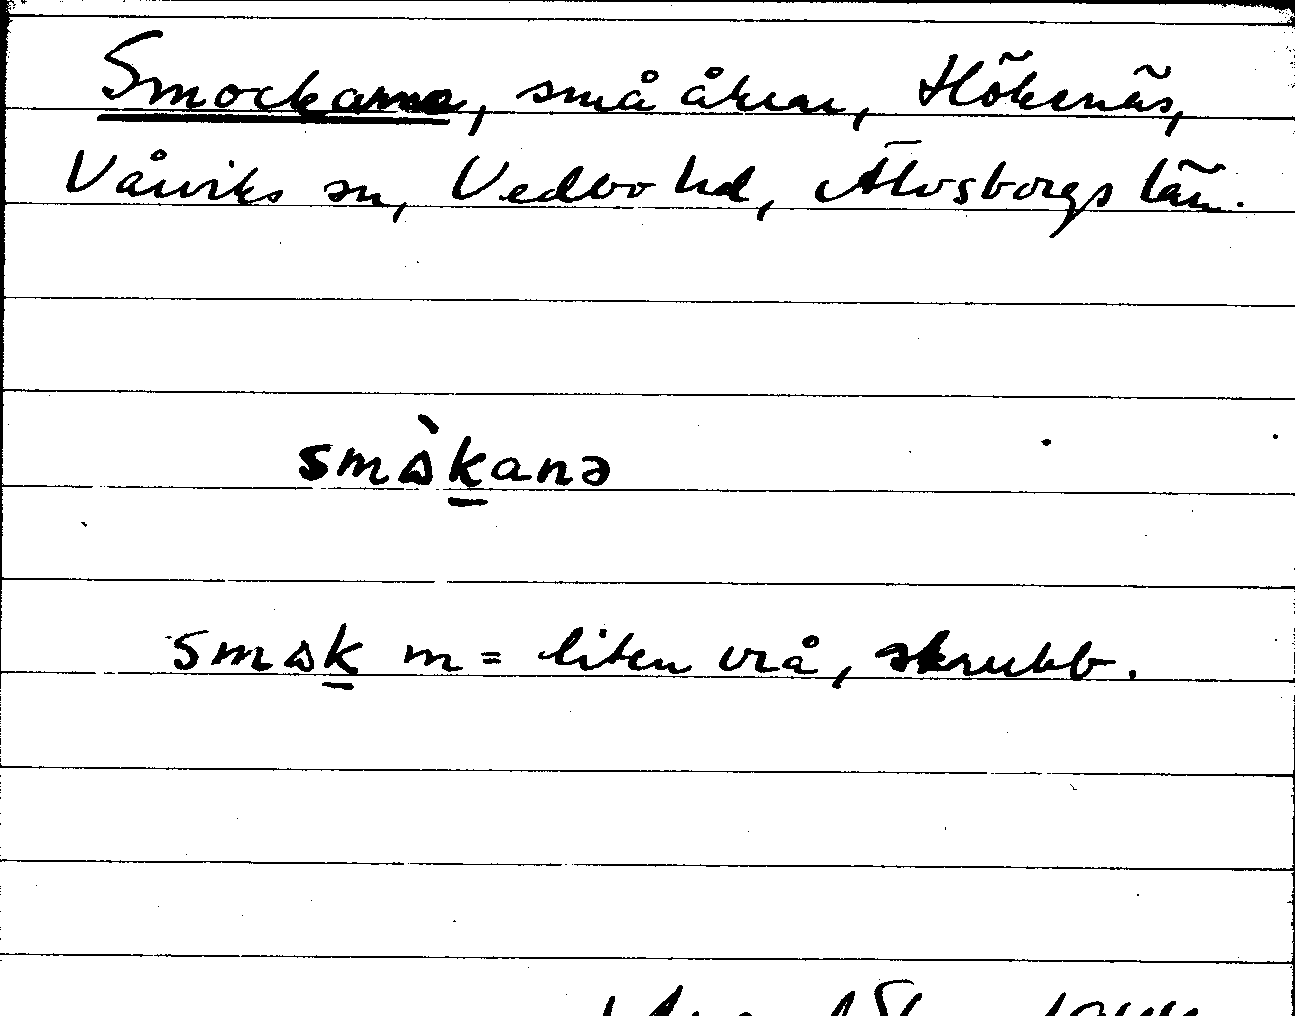 Smockarna, små åkrar, Hökenäs,
Vårviks sn, Vedbo hd, Älvsborgs län.
smὰkanə
smɷk m = liten vrå, skrubb.